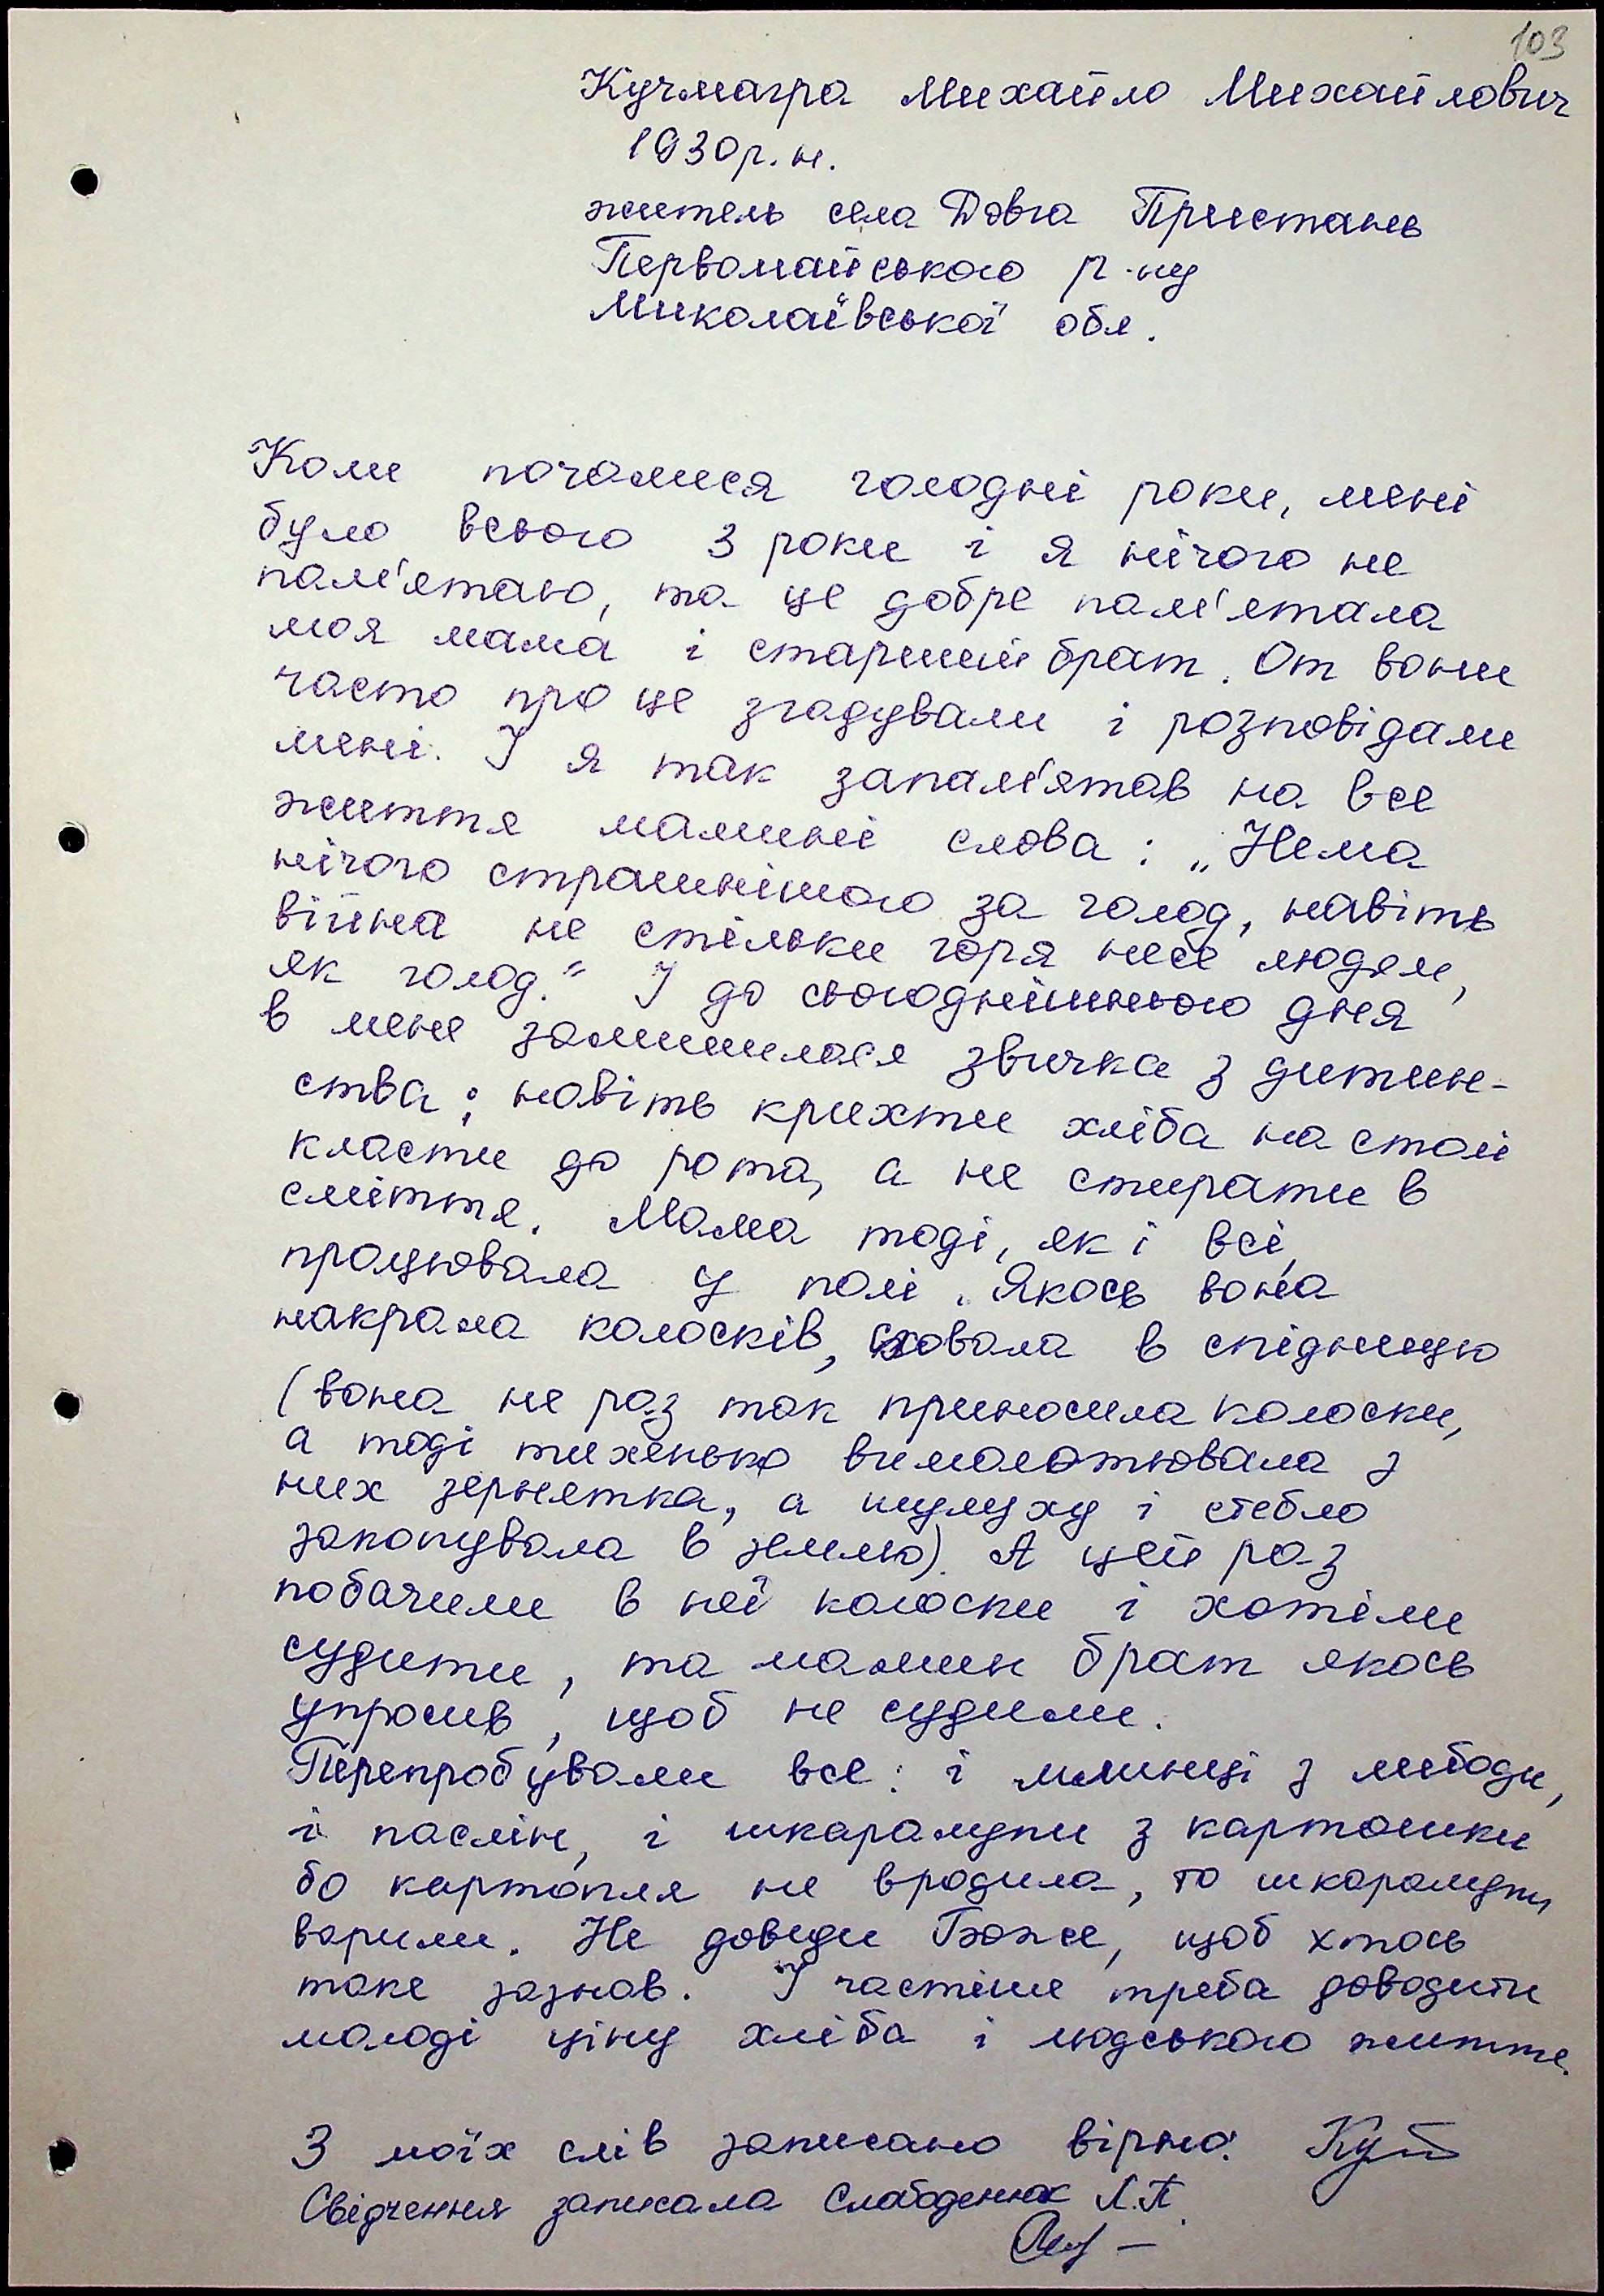 103
Кучмагра Михайло Михайлович
1930 р. н.
житель села Довга Пристань
Первомайського р-ну
Миколаївської обл.
Коли почалися голодні роки, мені
було всього 3 роки і я нічого не
пам'ятаю, та це добре пам'ятала
моя мама і старший брат. От вони
часто про це згадували і розповідали
мені. І я так запам'ятав на все
життя мамині слова: „Нема
нічого страшнішого за голод, навіть
війна не стільки горя несе людям,
як голод." І до сьогоднішнього дня
в мене залишилася звичка з дитин-
ства: навіть крихти хліба на столі
класти до рота, а не стирати в
сміття. Мама тоді, як і всі,
працювала у полі. Якось вона
накрала колосків, сховала в спідницю
(вона не раз так приносила колоски,
а тоді тихенько вимолотювала з
них зернятка, а шулуху і стебло
закопувала в землю). А цей раз
побачили в неї колоски і хотіли
судити, та мамин брат якось
упросив, щоб не судили.
Перепробували все: і млинці з лободи,
і паслін, і шкаралупи з картошки
бо картопля не вродила, то шкаралупи
варили. Не доведи Боже, щоб хтось
таке зазнав. І частіше треба доводити
молоді ціну хліба і людського життя.
З моїх слів записано вірно:
Свідчення записала Слабоденюк Л.П.